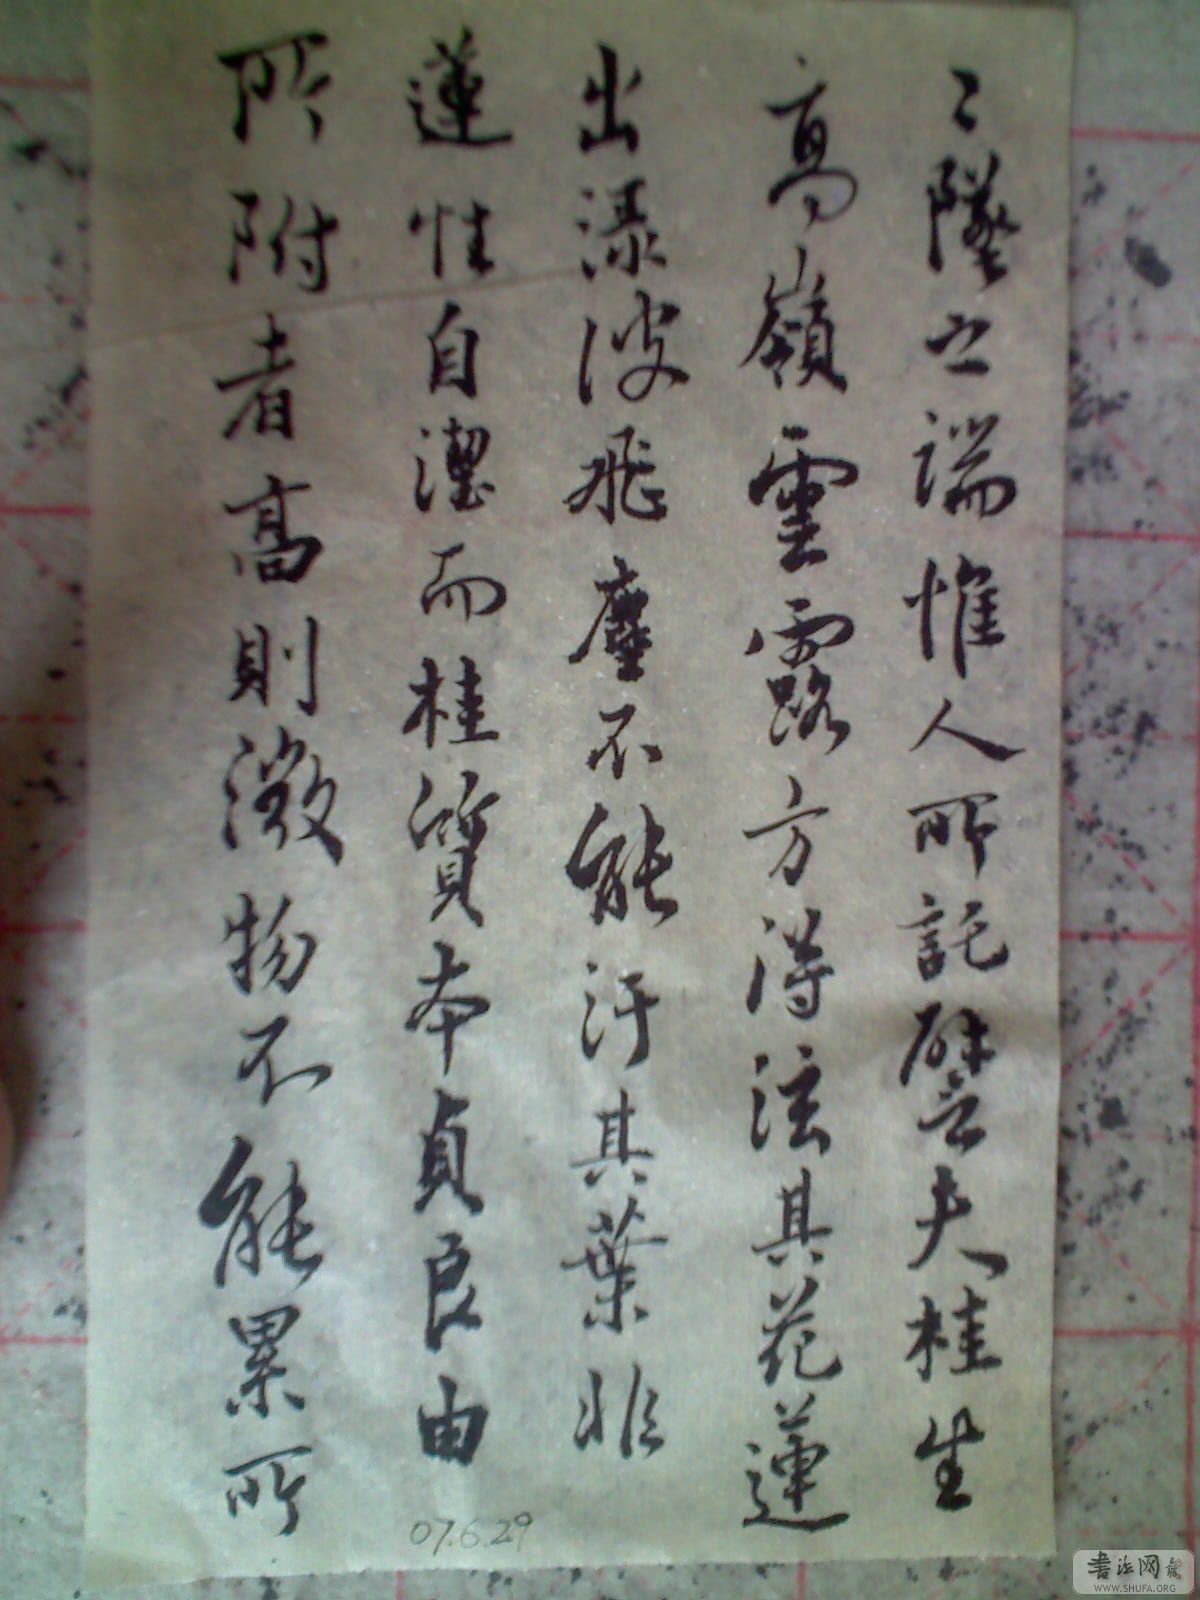 〻墜之端惟人所託譬夫桂生
高嶺雲露方得泫其花蓮
出淥波飛塵不能汙其葉非
蓮性自潔而桂質本貞良由
所附者高則微物不能累所
07.6.29
書法网
WWW.SHUFA.ORG